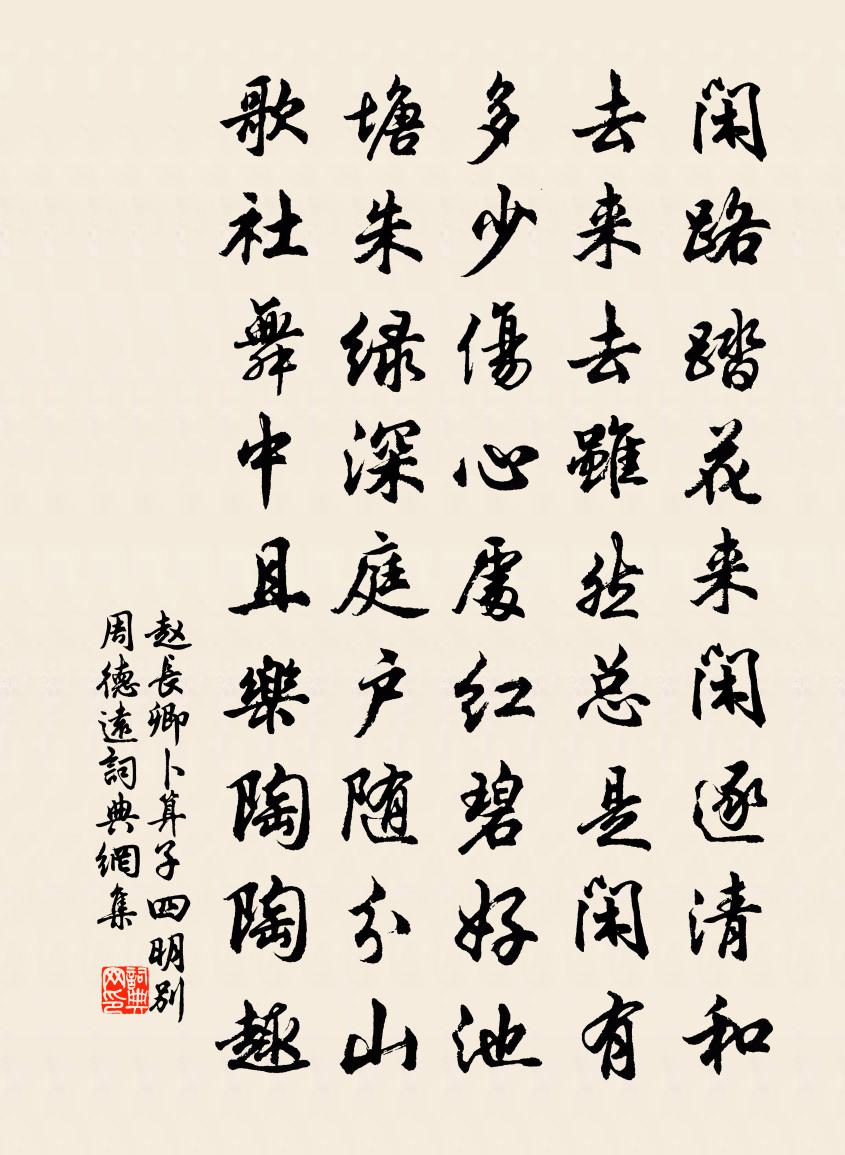 闲路踏花来闲逐清和
去来去雖然总是闲有
多少傷心處红碧好池
塘朱绿深庭户随分山
歌社舞中且樂陶陶趣
赵長卿卜算子四明别
周德遠詞典網集
詞典网印